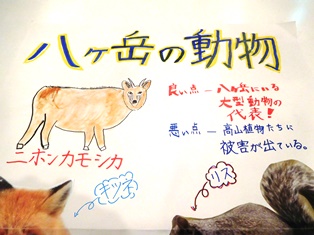 八ヶ岳の動物
良い点 ― 八ヶ岳にいる
大型動物の
代表!
悪い点 ― 高山植物たちに
被害が出ている。
ニホンカモシカ
キツネ
リス